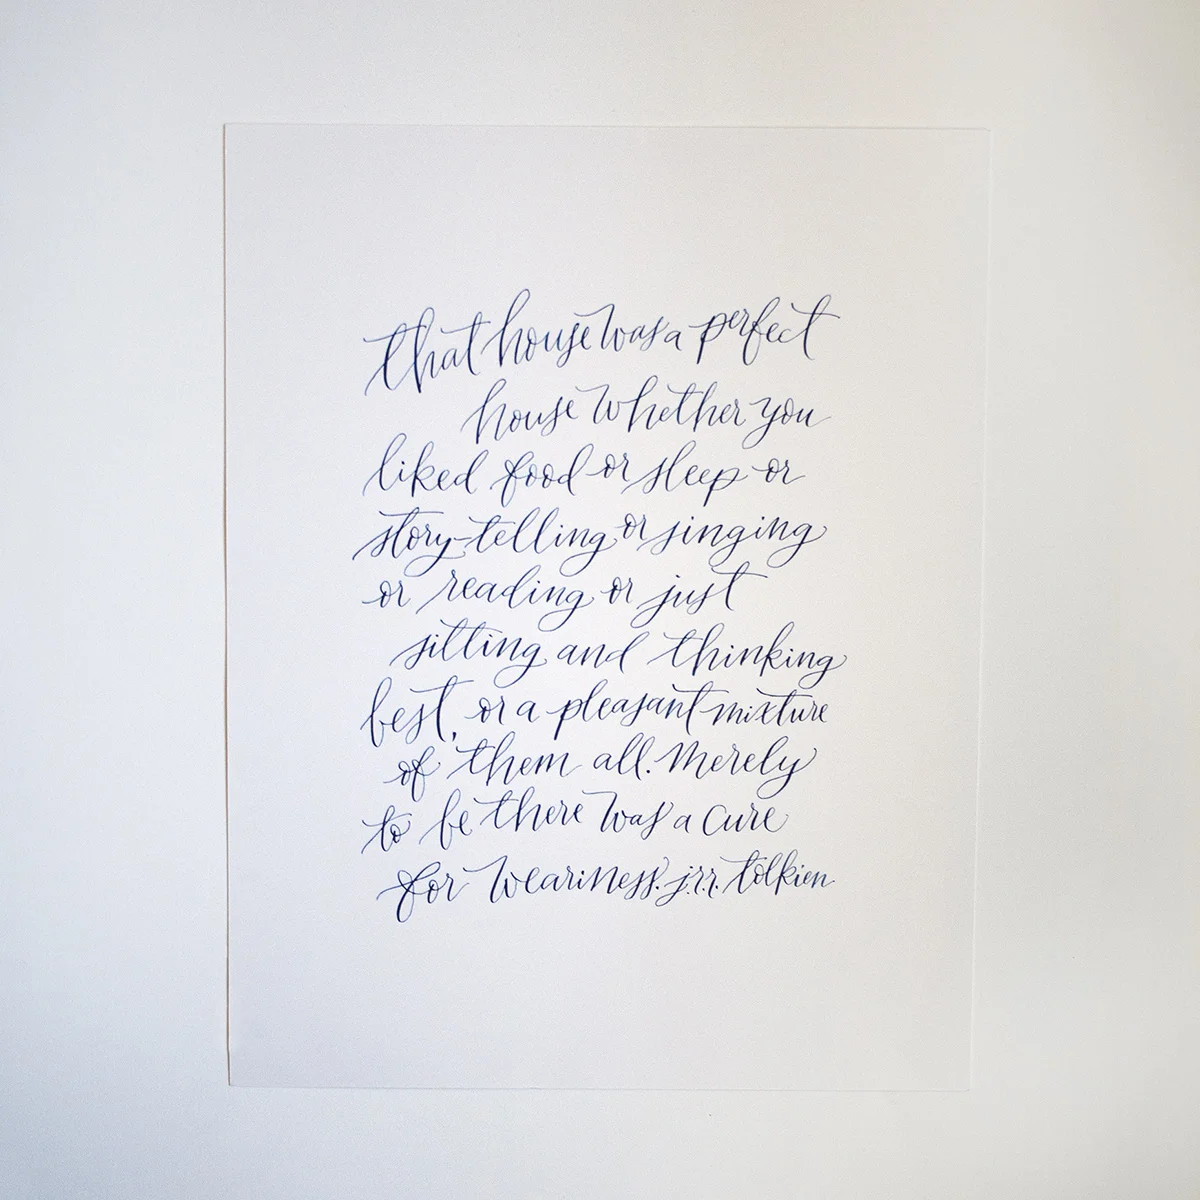 that house was a perfect
house whether you
liked food or sleep or
story-telling or singing
or reading or just
sitting and thinking
best, or a pleasant mixture
of them all. Merely
to be there was a cure
for weariness. j.r.r. tolkien